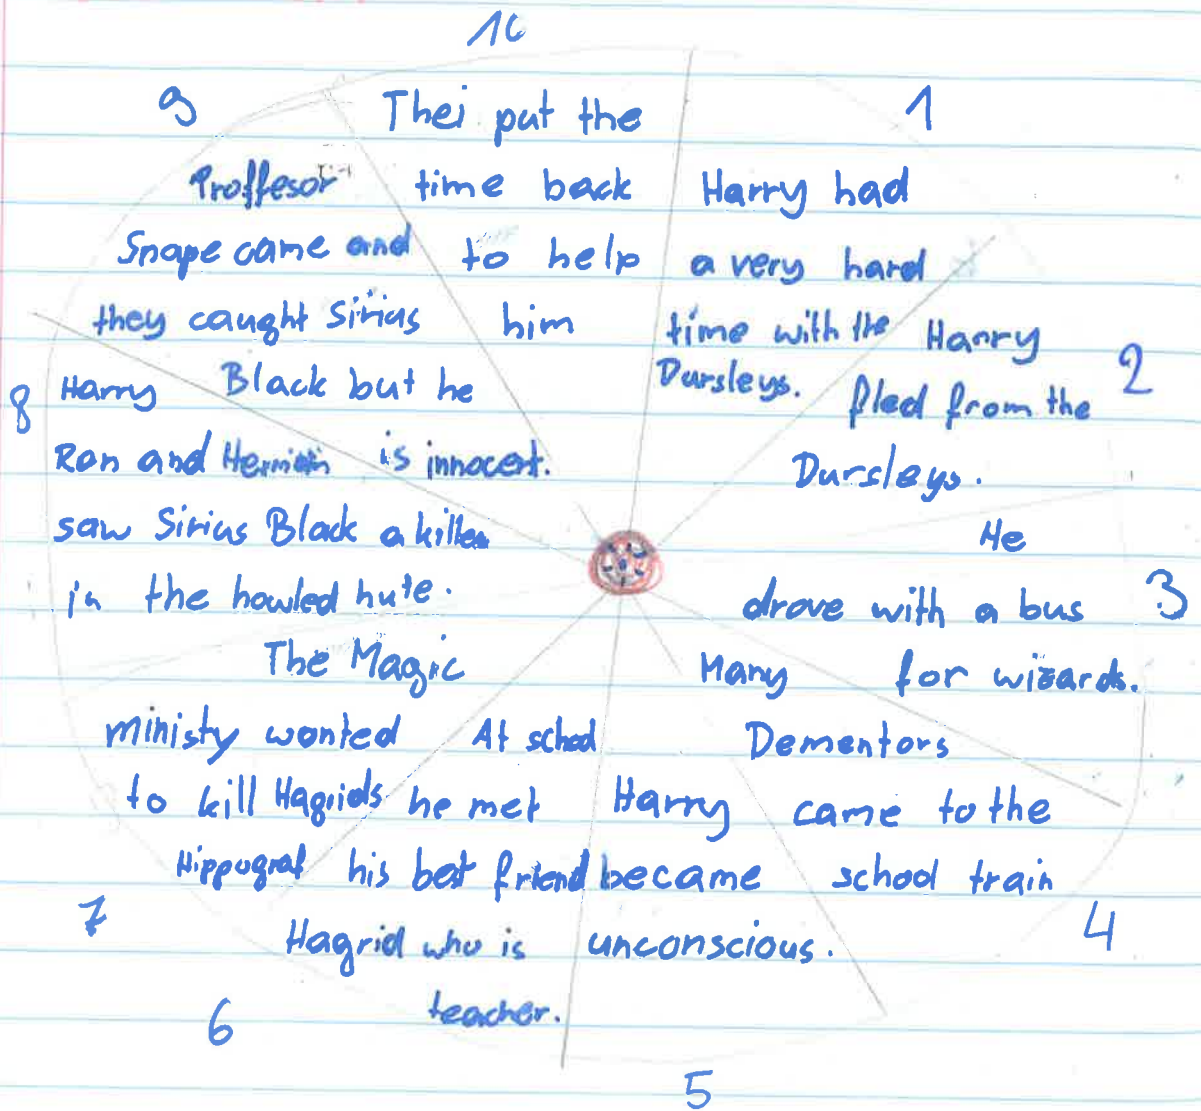 1
Harry had
a very hard
time with the
Dursleys.
2
Harry
fled from the
Dursleys.
3
He
drove with a bus
for wizards.
4
Many
Dementors
came to the
school train
5
Harry
became
unconscious.
6
At school
he met
his best friend
Hagrid who is
teacher.
7
The Magic
ministy wanted
to kill Hagrids
Hippograf
8
Harry
Ron and
saw Sirius Black a killer
in the howled hute.
9
Proffesor
Snape came and
they caught Sirius
Black but he
is innocent.
10
Thei put the
time back
to help
him